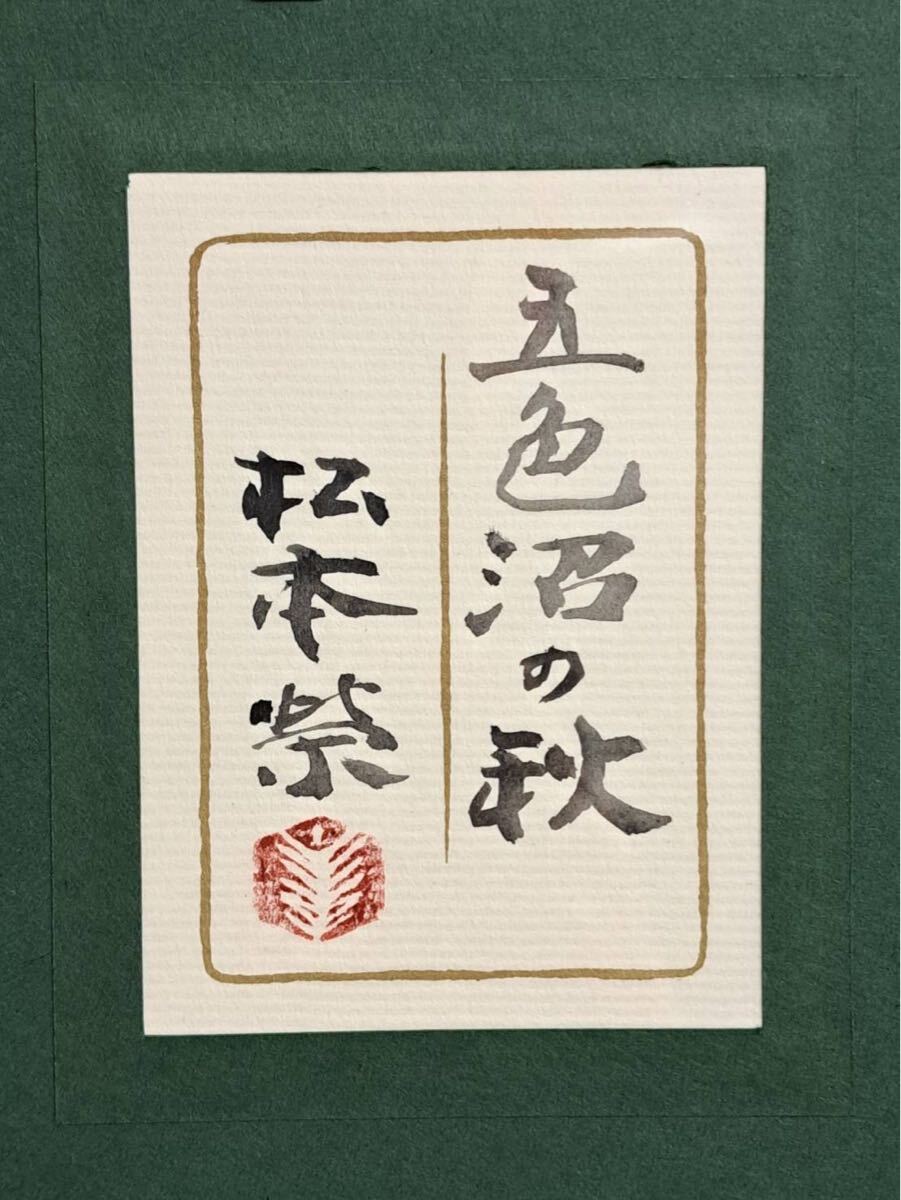 五色沼の秋
松本榮